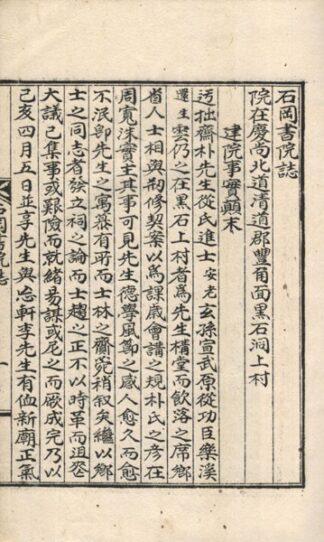 石岡書院誌
院在慶尚北道清道郡豐角面黑石洞上村
建院事實顛末
迃拙齋朴先生從氏進士安老玄孫宣武原從功臣樂溪
生雲仍之在黑石上村者為先生構堂而飲落之席鄉
省人士相與刱修契案以為課歲會講之規朴氏之彥在
周寬洙實主其事可見先生德學風節之感人愈久而愈
不泯卽先生之寓慕有所而士林之齎菀稍叙矣繼以鄉
士之同志者發立祠之論而士趨之正不以時革而沮
大議已集事或艱險而就緒易謀或尼之而厥成完乃以
己亥四月五日並享先生與忘軒李先生有侐新廟正氣
石岡書院誌
一